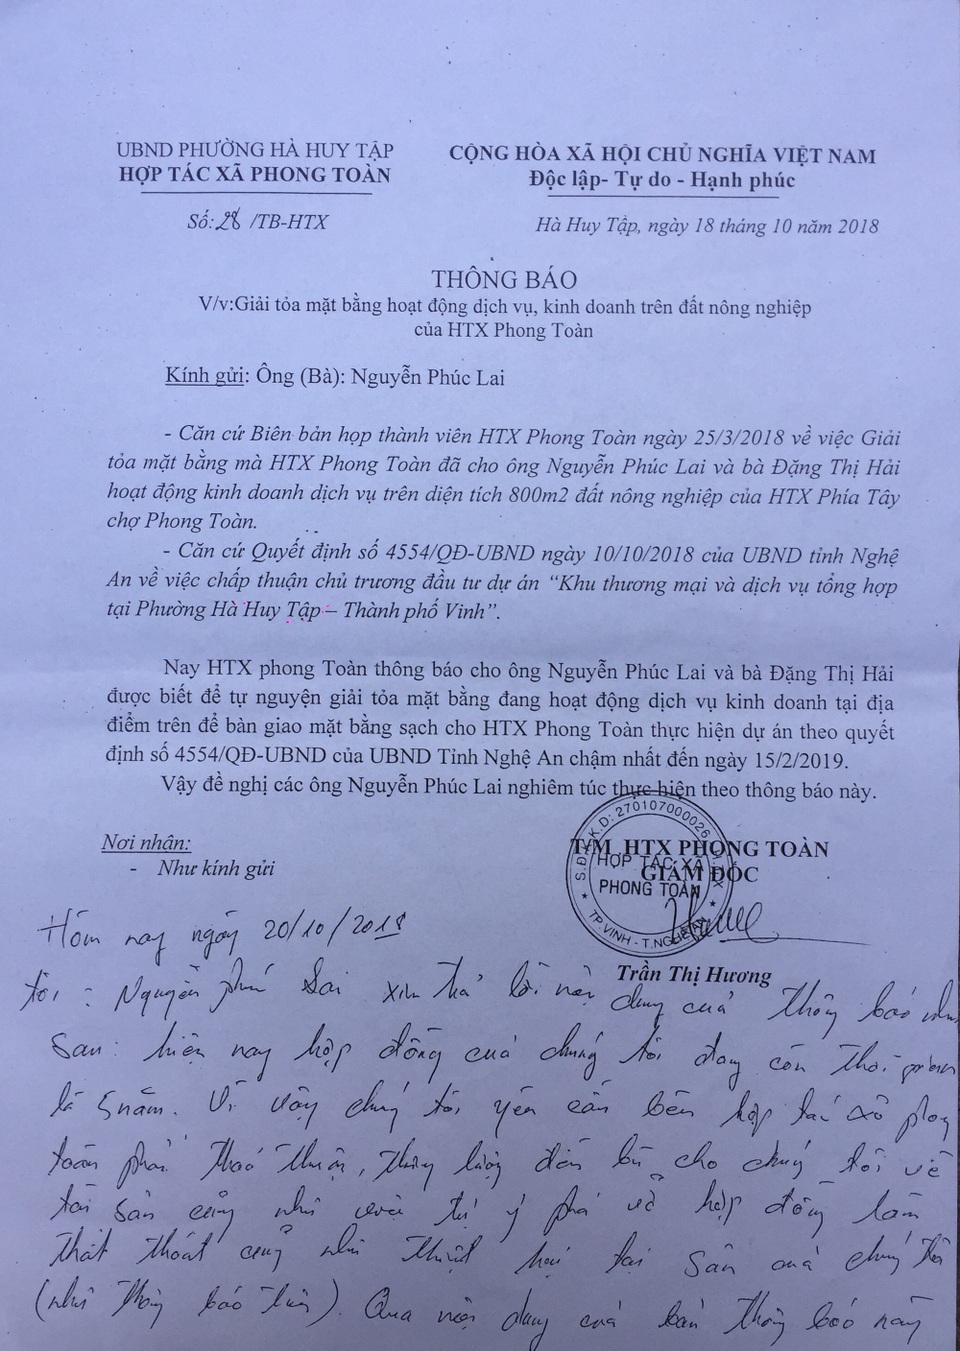 UBND PHƯỜNG HÀ HUY TẬP
HỢP TÁC XÃ PHONG TOÀN
Số: 28 /TB-HTX
CỘNG HÒA XÃ HỘI CHỦ NGHĨA VIỆT NAM
Độc lập- Tự do - Hạnh phúc
Hà Huy Tập, ngày 18 tháng 10 năm 2018
THÔNG BÁO
V/v:Giải tỏa mặt bằng hoạt động dịch vụ, kinh doanh trên đất nông nghiệp
của HTX Phong Toàn
Kính gửi: Ông (Bà): Nguyễn Phúc Lai
- Căn cứ Biên bản họp thành viên HTX Phong Toàn ngày 25/3/2018 về việc Giải
tỏa mặt bằng mà HTX Phong Toàn đã cho ông Nguyễn Phúc Lai và bà Đặng Thị Hải
hoạt động kinh doanh dịch vụ trên diện tích 800m2 đất nông nghiệp của HTX Phía Tây
chợ Phong Toàn.
- Căn cứ Quyết định số 4554/QĐ-UBND ngày 10/10/2018 của UBND tỉnh Nghệ
An về việc chấp thuận chủ trương đầu tư dự án “Khu thương mại và dịch vụ tổng hợp
tại Phường Hà Huy Tập – Thành phố Vinh”.
Nay HTX phong Toàn thông báo cho ông Nguyễn Phúc Lai và bà Đặng Thị Hải
được biết để tự nguyện giải tỏa mặt bằng đang hoạt động dịch vụ kinh doanh tại địa
điểm trên để bàn giao mặt bằng sạch cho HTX Phong Toàn thực hiện dự án theo quyết
định số 4554/QĐ-UBND của UBND Tỉnh Nghệ An chậm nhất đến ngày 15/2/2019.
Vậy đề nghị các ông Nguyễn Phúc Lai nghiêm túc thực hiện theo thông báo này.
Nơi nhận:
- Như kính gửi
T/M HTX PHONG TOÀN
GIÁM ĐỐC
S.Đ.K.K.D: 270107000026
HỢP TÁC XÃ
PHONG TOÀN
TP.VINH - T.NGHỆ AN
Trần Thị Hương
Hôm nay ngày 20/10/2018
tôi : Nguyễn phúc Lai xin trả lời nội dung của thông báo như
sau: hiện nay hợp đồng của chúng tôi đang còn thời gian
là 5 năm. Vì vậy chúng tôi yêu cầu bên hợp tác xã phong
toàn phải thoả thuận, thương lượng đền bù cho chúng tôi về
tài sản cũng như việc tự ý phá vỡ hợp đồng làm
thất thoát cũng như thiệt hại tài sản của chúng tôi
(như thông báo trên). Qua nội dung của bản thông báo này